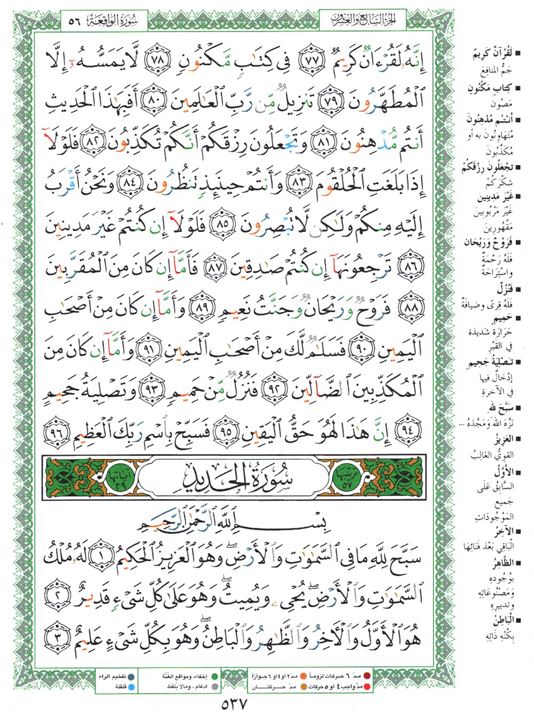 سُورَةُ الوَاقِعَة ٥٦
الجُزءُ السَّابِعُ وَالعِشْرُون
إِنَّهُۥ لَقُرْءَانٌ كَرِيمٌ ٧٧ فِى كِتَٰبٍ مَّكْنُونٍ ٧٨ لَّا يَمَسُّهُۥٓ إِلَّا
ٱلْمُطَهَّرُونَ ٧٩ تَنزِيلٌ مِّن رَّبِّ ٱلْعَٰلَمِينَ ٨٠ أَفَبِهَٰذَا ٱلْحَدِيثِ
أَنتُم مُّدْهِنُونَ ٨١ وَتَجْعَلُونَ رِزْقَكُمْ أَنَّكُمْ تُكَذِّبُونَ ٨٢ فَلَوْلَآ
إِذَا بَلَغَتِ ٱلْحُلْقُومَ ٨٣ وَأَنتُمْ حِينَئِذٍ تَنظُرُونَ ٨٤ وَنَحْنُ أَقْرَبُ
إِلَيْهِ مِنكُمْ وَلَٰكِن لَّا تُبْصِرُونَ ٨٥ فَلَوْلَآ إِن كُنتُمْ غَيْرَ مَدِينِينَ
٨٦ تَرْجِعُونَهَآ إِن كُنتُمْ صَٰدِقِينَ ٨٧ فَأَمَّآ إِن كَانَ مِنَ ٱلْمُقَرَّبِينَ
٨٨ فَرَوْحٌ وَرَيْحَانٌ وَجَنَّتُ نَعِيمٍ ٨٩ وَأَمَّآ إِن كَانَ مِنْ أَصْحَٰبِ
ٱلْيَمِينِ ٩٠ فَسَلَٰمٌ لَّكَ مِنْ أَصْحَٰبِ ٱلْيَمِينِ ٩١ وَأَمَّآ إِن كَانَ مِنَ
ٱلْمُكَذِّبِينَ ٱلضَّآلِّينَ ٩٢ فَنُزُلٌ مِّنْ حَمِيمٍ ٩٣ وَتَصْلِيَةُ جَحِيمٍ
٩٤ إِنَّ هَٰذَا لَهُوَ حَقُّ ٱلْيَقِينِ ٩٥ فَسَبِّحْ بِٱسْمِ رَبِّكَ ٱلْعَظِيمِ ٩٦
سُورَةُ الحَدِيدِ
بِسْمِ ٱللَّهِ ٱلرَّحْمَٰنِ ٱلرَّحِيمِ
سَبَّحَ لِلَّهِ مَا فِى ٱلسَّمَٰوَٰتِ وَٱلْأَرْضِ وَهُوَ ٱلْعَزِيزُ ٱلْحَكِيمُ ١ لَهُۥ مُلْكُ
ٱلسَّمَٰوَٰتِ وَٱلْأَرْضِ يُحْىِۦ وَيُمِيتُ وَهُوَ عَلَىٰ كُلِّ شَىْءٍ قَدِيرٌ ٢
هُوَ ٱلْأَوَّلُ وَٱلْءَاخِرُ وَٱلظَّٰهِرُ وَٱلْبَاطِنُ وَهُوَ بِكُلِّ شَىْءٍ عَلِيمٌ ٣
لَقُرْآنٌ كَرِيمٌ
جَمُّ المنافِعِ
كِتابٍ مَكْنُونٍ
مَصُونٍ
أنتُم مُدْهِنُونَ
مُتَهاوِنُونَ بِهِ أو
مُكَذِّبُونَ
تَجْعَلُونَ رِزْقَكُمْ
شُكْرَكُمْ
غَيْرَ مَدِينِينَ
غَيْرَ مَرْبُوبِينَ
مَقْهُورِينَ
فَرَوْحٌ وَرَيْحَان
فَلَهُ رَحْمَةٌ
واسْتِرَاحَةٌ
فَنُزُلٌ
فَلَهُ قِرًى وضِيَافَةٌ
حَمِيمٍ
حَرَارَةٍ شديدة
في القَبْرِ
تَصْلِيَةُ جَحِيمٍ
إدْخَالٌ فيها
في الآخِرَةِ
سَبَّحَ للهِ
نَزَّهَ اللهَ وَمَجَّدَهُ ...
العَزِيزُ
القَوِيُّ الغَالِبُ
الأوَّلُ
السَّابِقُ عَلَى
جَمِيعِ
المَوْجُودَاتِ
الآخِرُ
الباقي بَعْدَ فَنَائِهَا
الظَّاهِرُ
بِوُجُودِهِ
وَمَصْنُوعَاتِهِ
وتدبيرِهِ
الْبَاطِنُ
بِكُنْهِ ذَاتِهِ
مدّ ٦ حركات لزوماً
مدّ ٢ أو ٤ أو ٦ جوازاً
إخفاء، ومواقع الغُنَّة
تفخيم الراء
مدّ واجب ٤ أو ٥ حركات
مدّ حركتان
إدغام، وما لا يُلفظ
قلقلة
٥٣٧